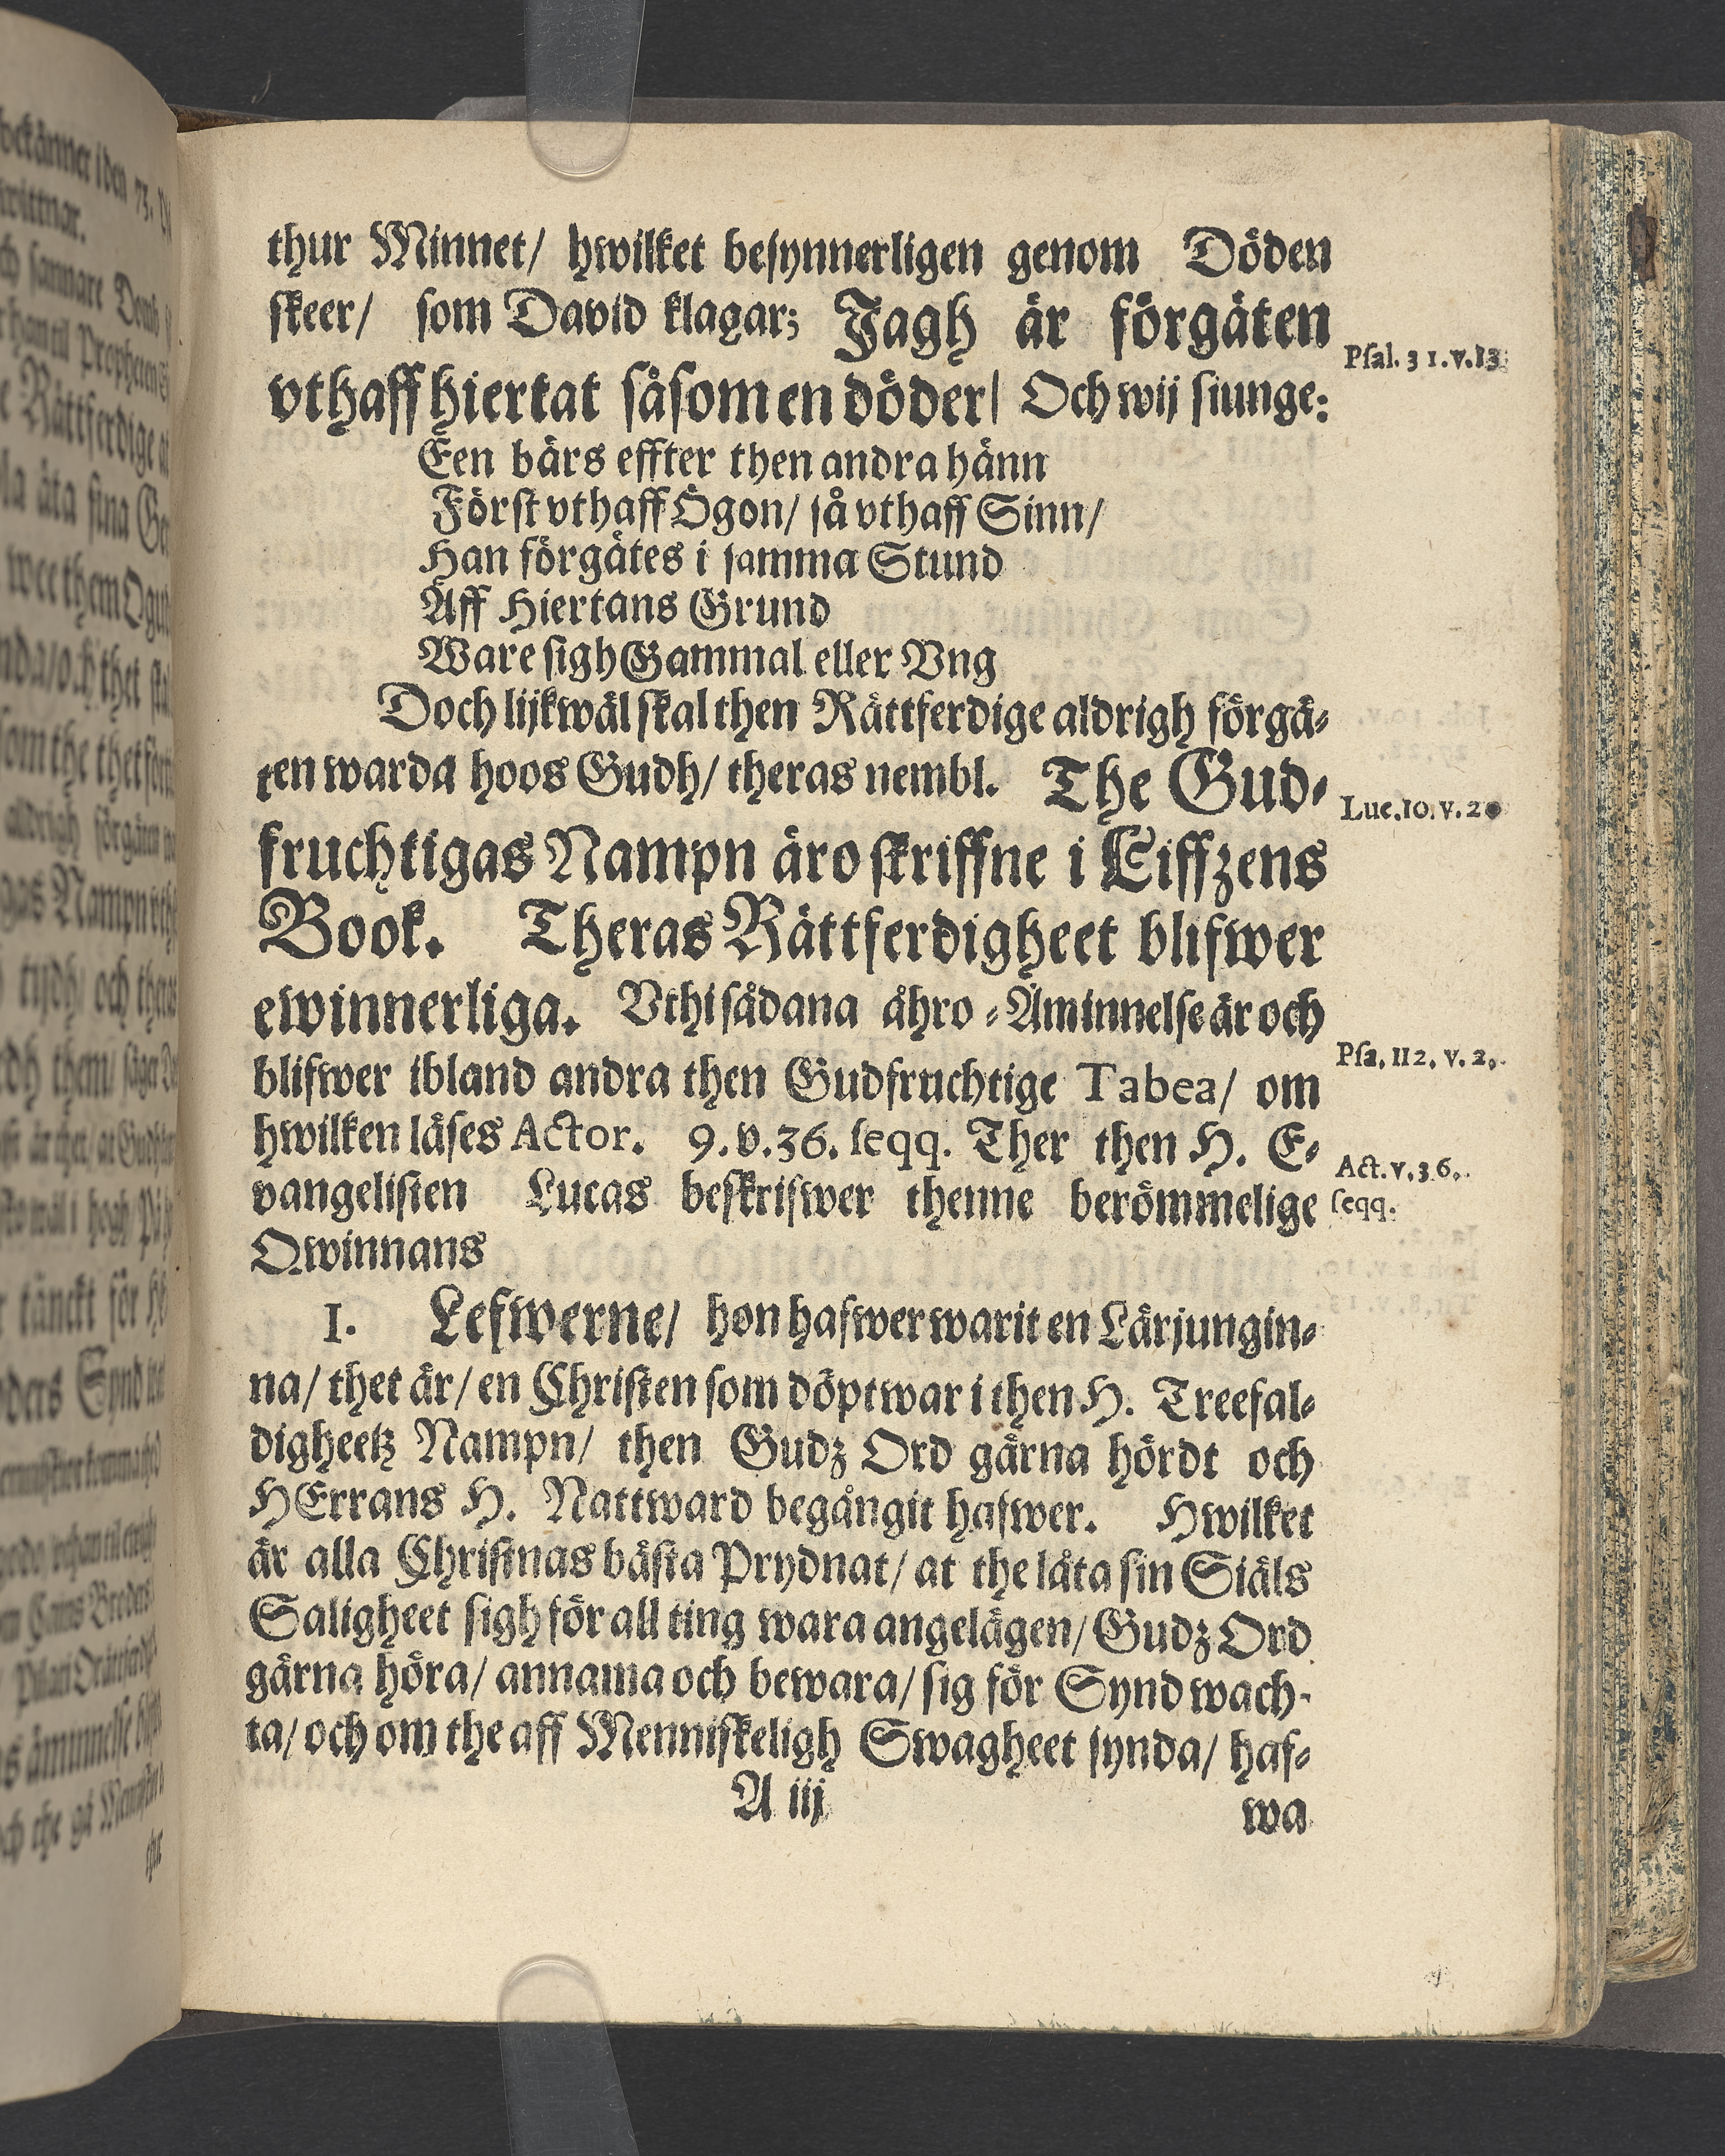 thur Minnet/ hwilket besynnerligen genom Döden
skeer/ som David klagar; Jagh är förgäten
vthaff hiertat såsom en döder/ Och wij siunge:
Een bärs effter then andra hänn
Först vthaff Ögon/ så vthaff Sinn/
Han förgätes i samma Stund
Aff Hiertans Grund
Ware sigh Gammal eller Vng
Doch lijkwäl skal then Rättferdige aldrigh förgä-
ten warda hoos Gudh/ theras nembl. The Gud-
fruchtigas Nampn äro skriffne i Liffzens
Book. Theras Rättferdigheet blifwer
ewinnerliga. Vthi sådana åhro-Åminnelse är och
blifwer ibland andra then Gudfruchtige Tabea/ om
hwilken läses Actor. 9. v. 36. seqq. Ther then H. E-
vangelisten Lucas beskrifwer thenne berömmelige
Qwinnans
I. Lefwerne/ hon hafwer warit en Lärjungin-
na/ thet är/ en Christen som döpt war i then H. Treefal-
digheetz Nampn/ then Gudz Ord gärna hördt och
HErrans H. Nattward begångit hafwer. Hwilket
är alla Christnas bästa Prydnat/ at the låta sin Siäls
Saligheet sigh för all ting wara angelägen/ Gudz Ord
gärna höra/ annama och bewara/ sig för Synd wach-
ta/ och om the aff Menniskeligh Swagheet synda/ haf-
A iij
wa
Psal. 31. v. 13.
Luc. 10. v. 20
Psa. 112. v. 2.
Act. v. 36.
seqq.